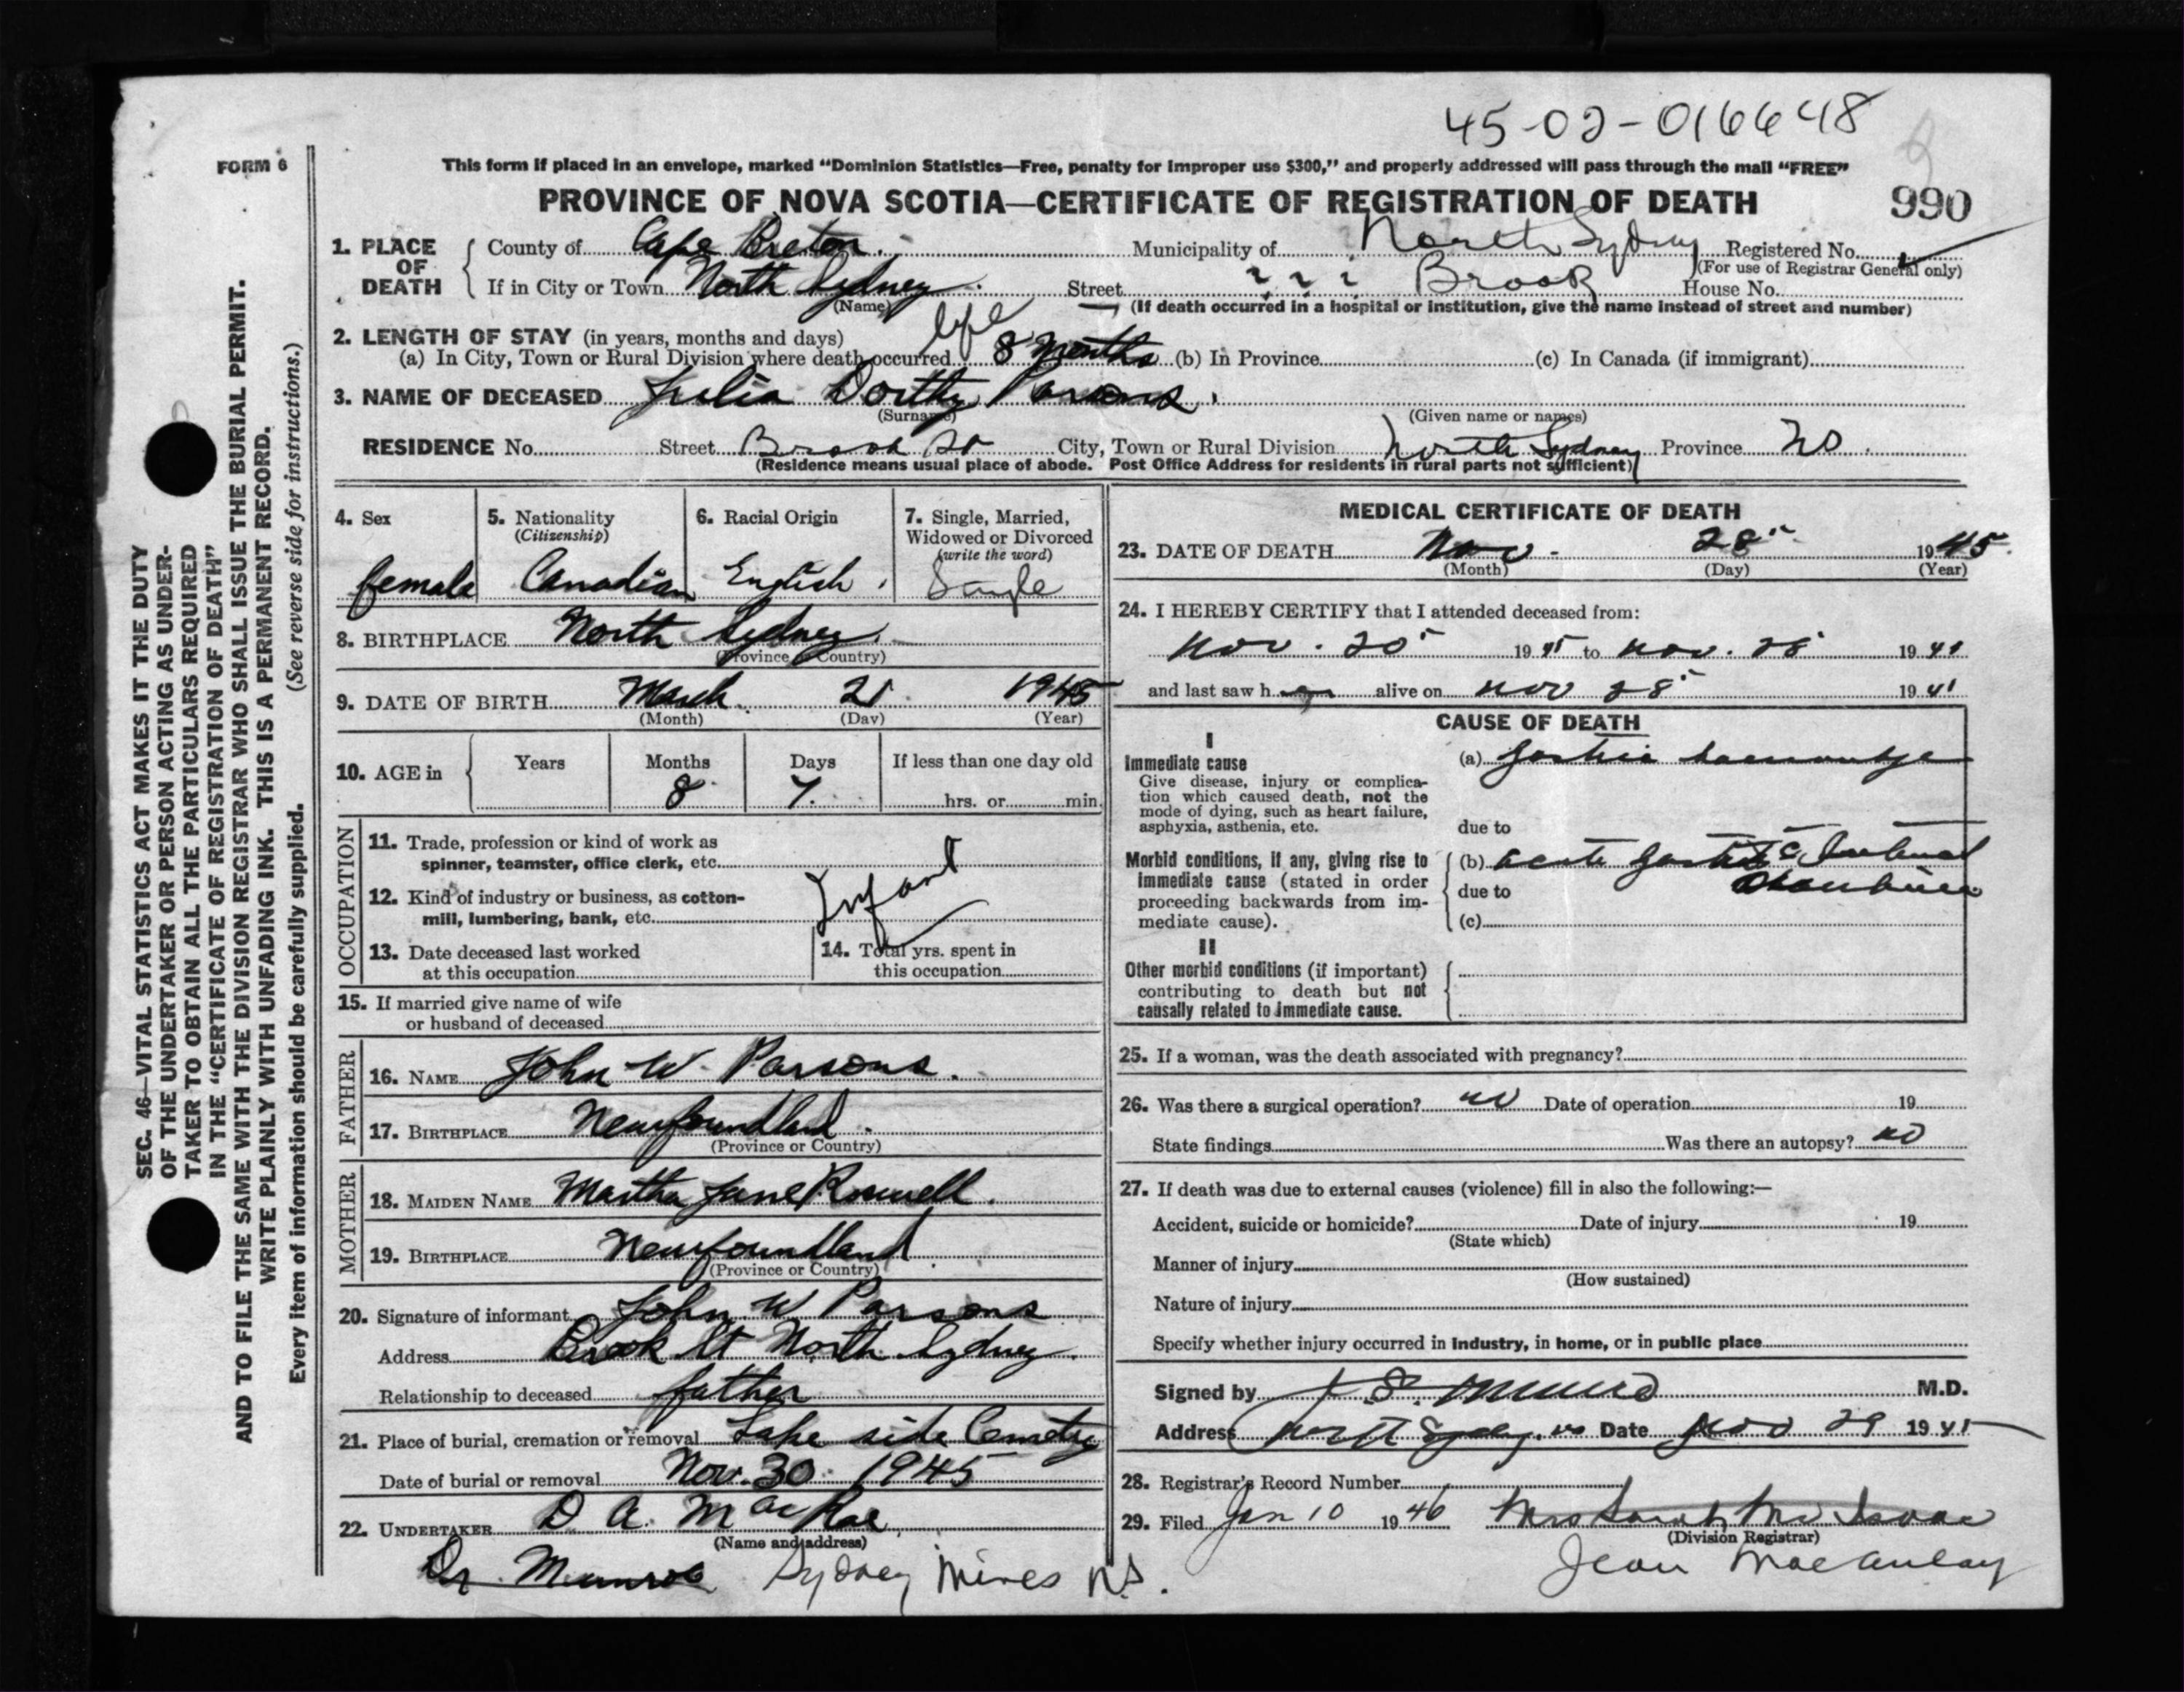 45-02-016648
FORM 6
This form if placed in an envelope, marked “Dominion Statistics—Free, penalty for improper use $300,” and properly addressed will pass through the mail “FREE”
PROVINCE OF NOVA SCOTIA—CERTIFICATE OF REGISTRATION OF DEATH
990
1. PLACE OF DEATH
County of Cape Breton. Municipality of North Sydney Registered No.
(For use of Registrar General only)
If in City or Town North Sydney. Street ? ? ? Brook House No.
(Name) (If death occurred in a hospital or institution, give the name instead of street and number)
2. LENGTH OF STAY (in years, months and days) life
(a) In City, Town or Rural Division where death occurred 8 Months (b) In Province (c) In Canada (if immigrant)
3. NAME OF DECEASED Julia Dorthy Parsons.
(Surname) (Given name or names)
RESIDENCE No. Street Brook St City, Town or Rural Division North Sydney Province NS.
(Residence means usual place of abode. Post Office Address for residents in rural parts not sufficient)
4. Sex
female
5. Nationality
(Citizenship)
Canadian
6. Racial Origin
English.
7. Single, Married,
Widowed or Divorced
(write the word)
Single
8. BIRTHPLACE North Sydney.
(Province or Country)
9. DATE OF BIRTH March 21 1945
(Month) (Day) (Year)
10. AGE in
Years Months Days If less than one day old
8 7. hrs. or min.
OCCUPATION
11. Trade, profession or kind of work as
spinner, teamster, office clerk, etc.
12. Kind of industry or business, as cotton-
mill, lumbering, bank, etc.
Infant
13. Date deceased last worked
at this occupation
14. Total yrs. spent in
this occupation
15. If married give name of wife
or husband of deceased
FATHER
16. NAME John W. Parsons.
17. BIRTHPLACE Newfoundland.
(Province or Country)
MOTHER
18. MAIDEN NAME Martha Jane
19. BIRTHPLACE Newfoundland
(Province or Country)
20. Signature of informant John W Parsons
Address Brook St North Sydney.
Relationship to deceased father
21. Place of burial, cremation or removal Lake side Cemetry
Date of burial or removal Nov. 30 1945
22. UNDERTAKER D A. MacRae
(Name and address)
Dr. Munroe Sydney Mines N.S.
MEDICAL CERTIFICATE OF DEATH
23. DATE OF DEATH Nov - 28 1945
(Month) (Day) (Year)
24. I HEREBY CERTIFY that I attended deceased from:
Nov. 20 1945 to Nov. 28 1945
and last saw her alive on Nov 28 1945
CAUSE OF DEATH
I
Immediate cause
Give disease, injury or complica-
tion which caused death, not the
mode of dying, such as heart failure,
asphyxia, asthenia, etc.
(a)
due to
Morbid conditions, if any, giving rise to
immediate cause (stated in order
proceeding backwards from im-
mediate cause).
(b) acute
due to
(c)
II
Other morbid conditions (if important)
contributing to death but not
causally related to immediate cause.
25. If a woman, was the death associated with pregnancy?
26. Was there a surgical operation? no Date of operation 19
State findings Was there an autopsy? no
27. If death was due to external causes (violence) fill in also the following:—
Accident, suicide or homicide? Date of injury 19
(State which)
Manner of injury
(How sustained)
Nature of injury
Specify whether injury occurred in industry, in home, or in public place
Signed by Munro M.D.
Address North Sydney. Date Nov 29 1945
28. Registrar's Record Number
29. Filed Jan 10 1946 Mrs Sarah McIsaac
(Division Registrar)
Jean MacAulay
SEC. 46—VITAL STATISTICS ACT MAKES IT THE DUTY
OF THE UNDERTAKER OR PERSON ACTING AS UNDER-
TAKER TO OBTAIN ALL THE PARTICULARS REQUIRED
IN THE “CERTIFICATE OF REGISTRATION OF DEATH”
AND TO FILE THE SAME WITH THE DIVISION REGISTRAR WHO SHALL ISSUE THE BURIAL PERMIT.
WRITE PLAINLY WITH UNFADING INK. THIS IS A PERMANENT RECORD.
Every item of information should be carefully supplied. (See reverse side for instructions.)